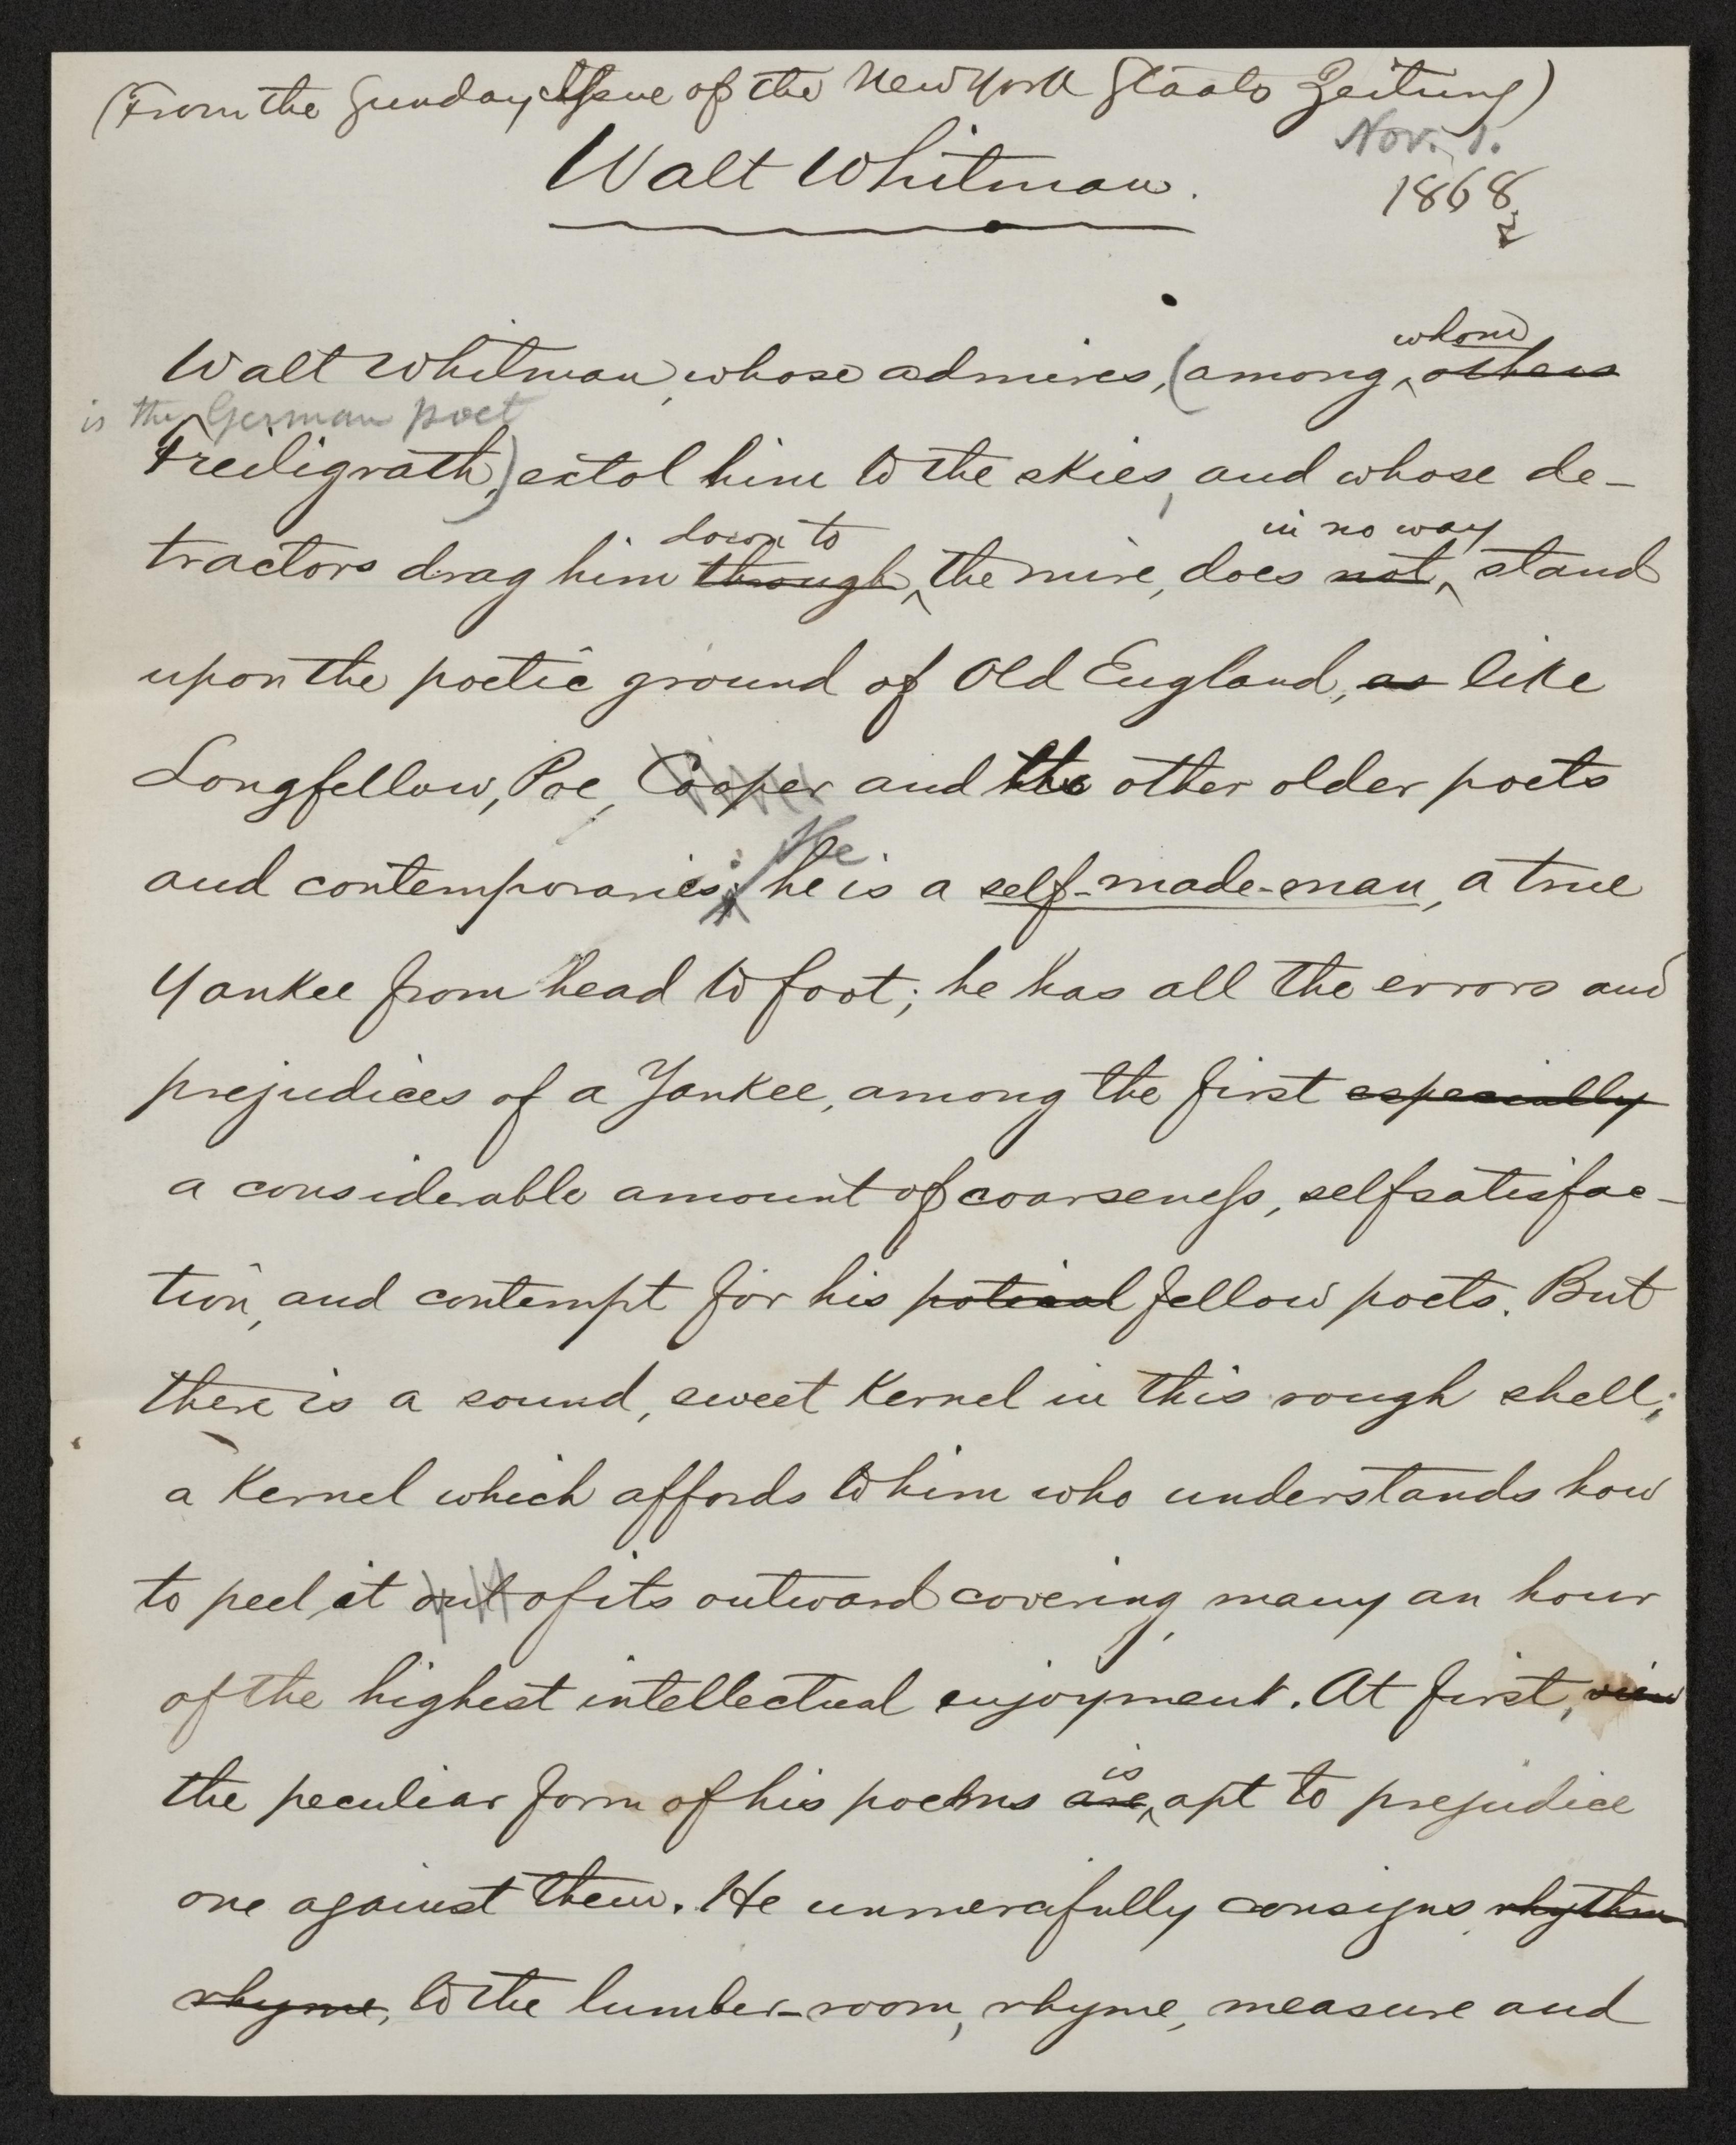 (From the Sunday Issue of the New York Staats Zeitung)
Nov. 1.
Walt Whitman.
1868
whom
Walt Whitman, whose admires, (among others
is the German poet
Freiligrath,) extol him to the skies, and whose de-
down to in no way
tractors drag him through the mire, does not stand
upon the poetic ground of Old England, as like
Longfellow, Poe, Cooper and the other older poets
He
and contemporaries; he is a self-made-man, a true
Yankee from head to foot; he has all the errors and
prejudices of a Yankee, among the first especially
a considerable amount of coarseness, selfsatisfac-
tion, and contempt for his poetical fellow poets. But
there is a sound, sweet Kernel in this rough shell;
a Kernel which affords to him who understands how
to peel it out of its outward covering, many an hour
of the highest intellectual enjoyment. At first, view
is
the peculiar form of his poems are apt to prejudice
one against them. He unmercifully consigns rhythm
rhyme, to the lumber-room, rhyme, measure and